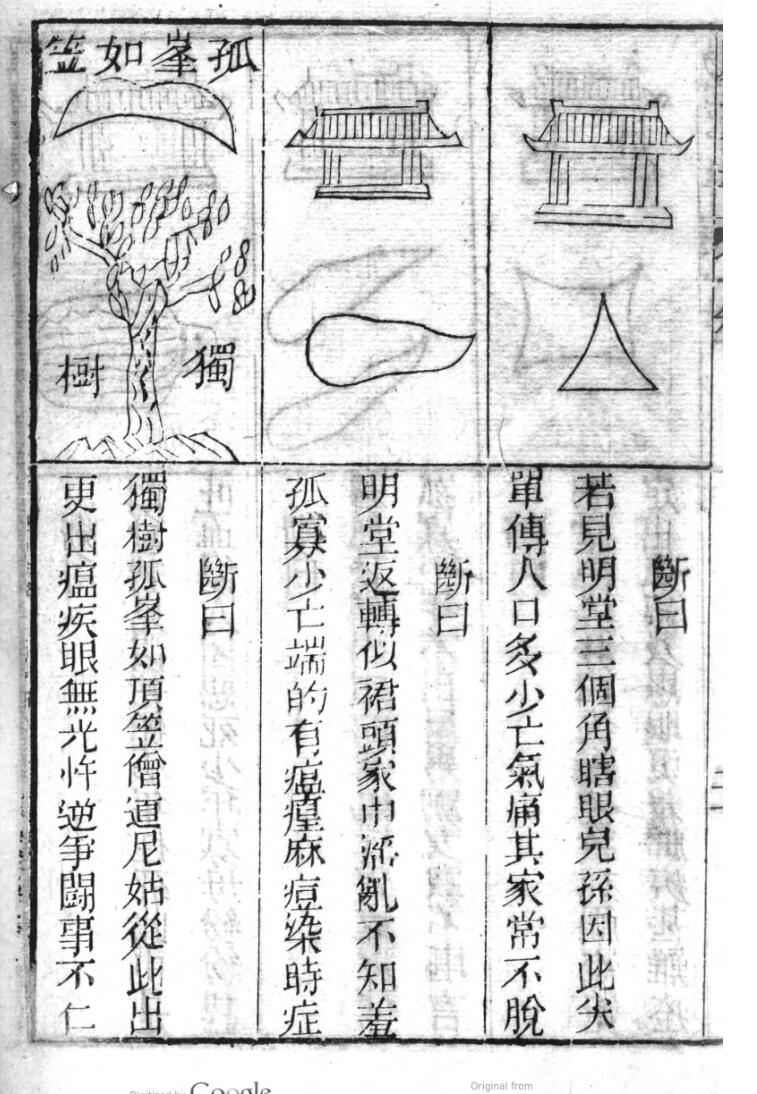 斷曰
若見明堂三個角瞎眼兒孫因此尖
單傳人口多少亡氣痛其家常不脫
斷曰
明堂返轉似裙頭家中淫亂不知羞
孤寡少亡端的有瘟𤶊麻痘染時症
孤峯如笠
獨樹
斷曰
獨樹孤峯如頂笠僧道尼姑從此出
更出瘟疾眼無光忤逆爭鬪事不仁
Digitized by Google
Original from